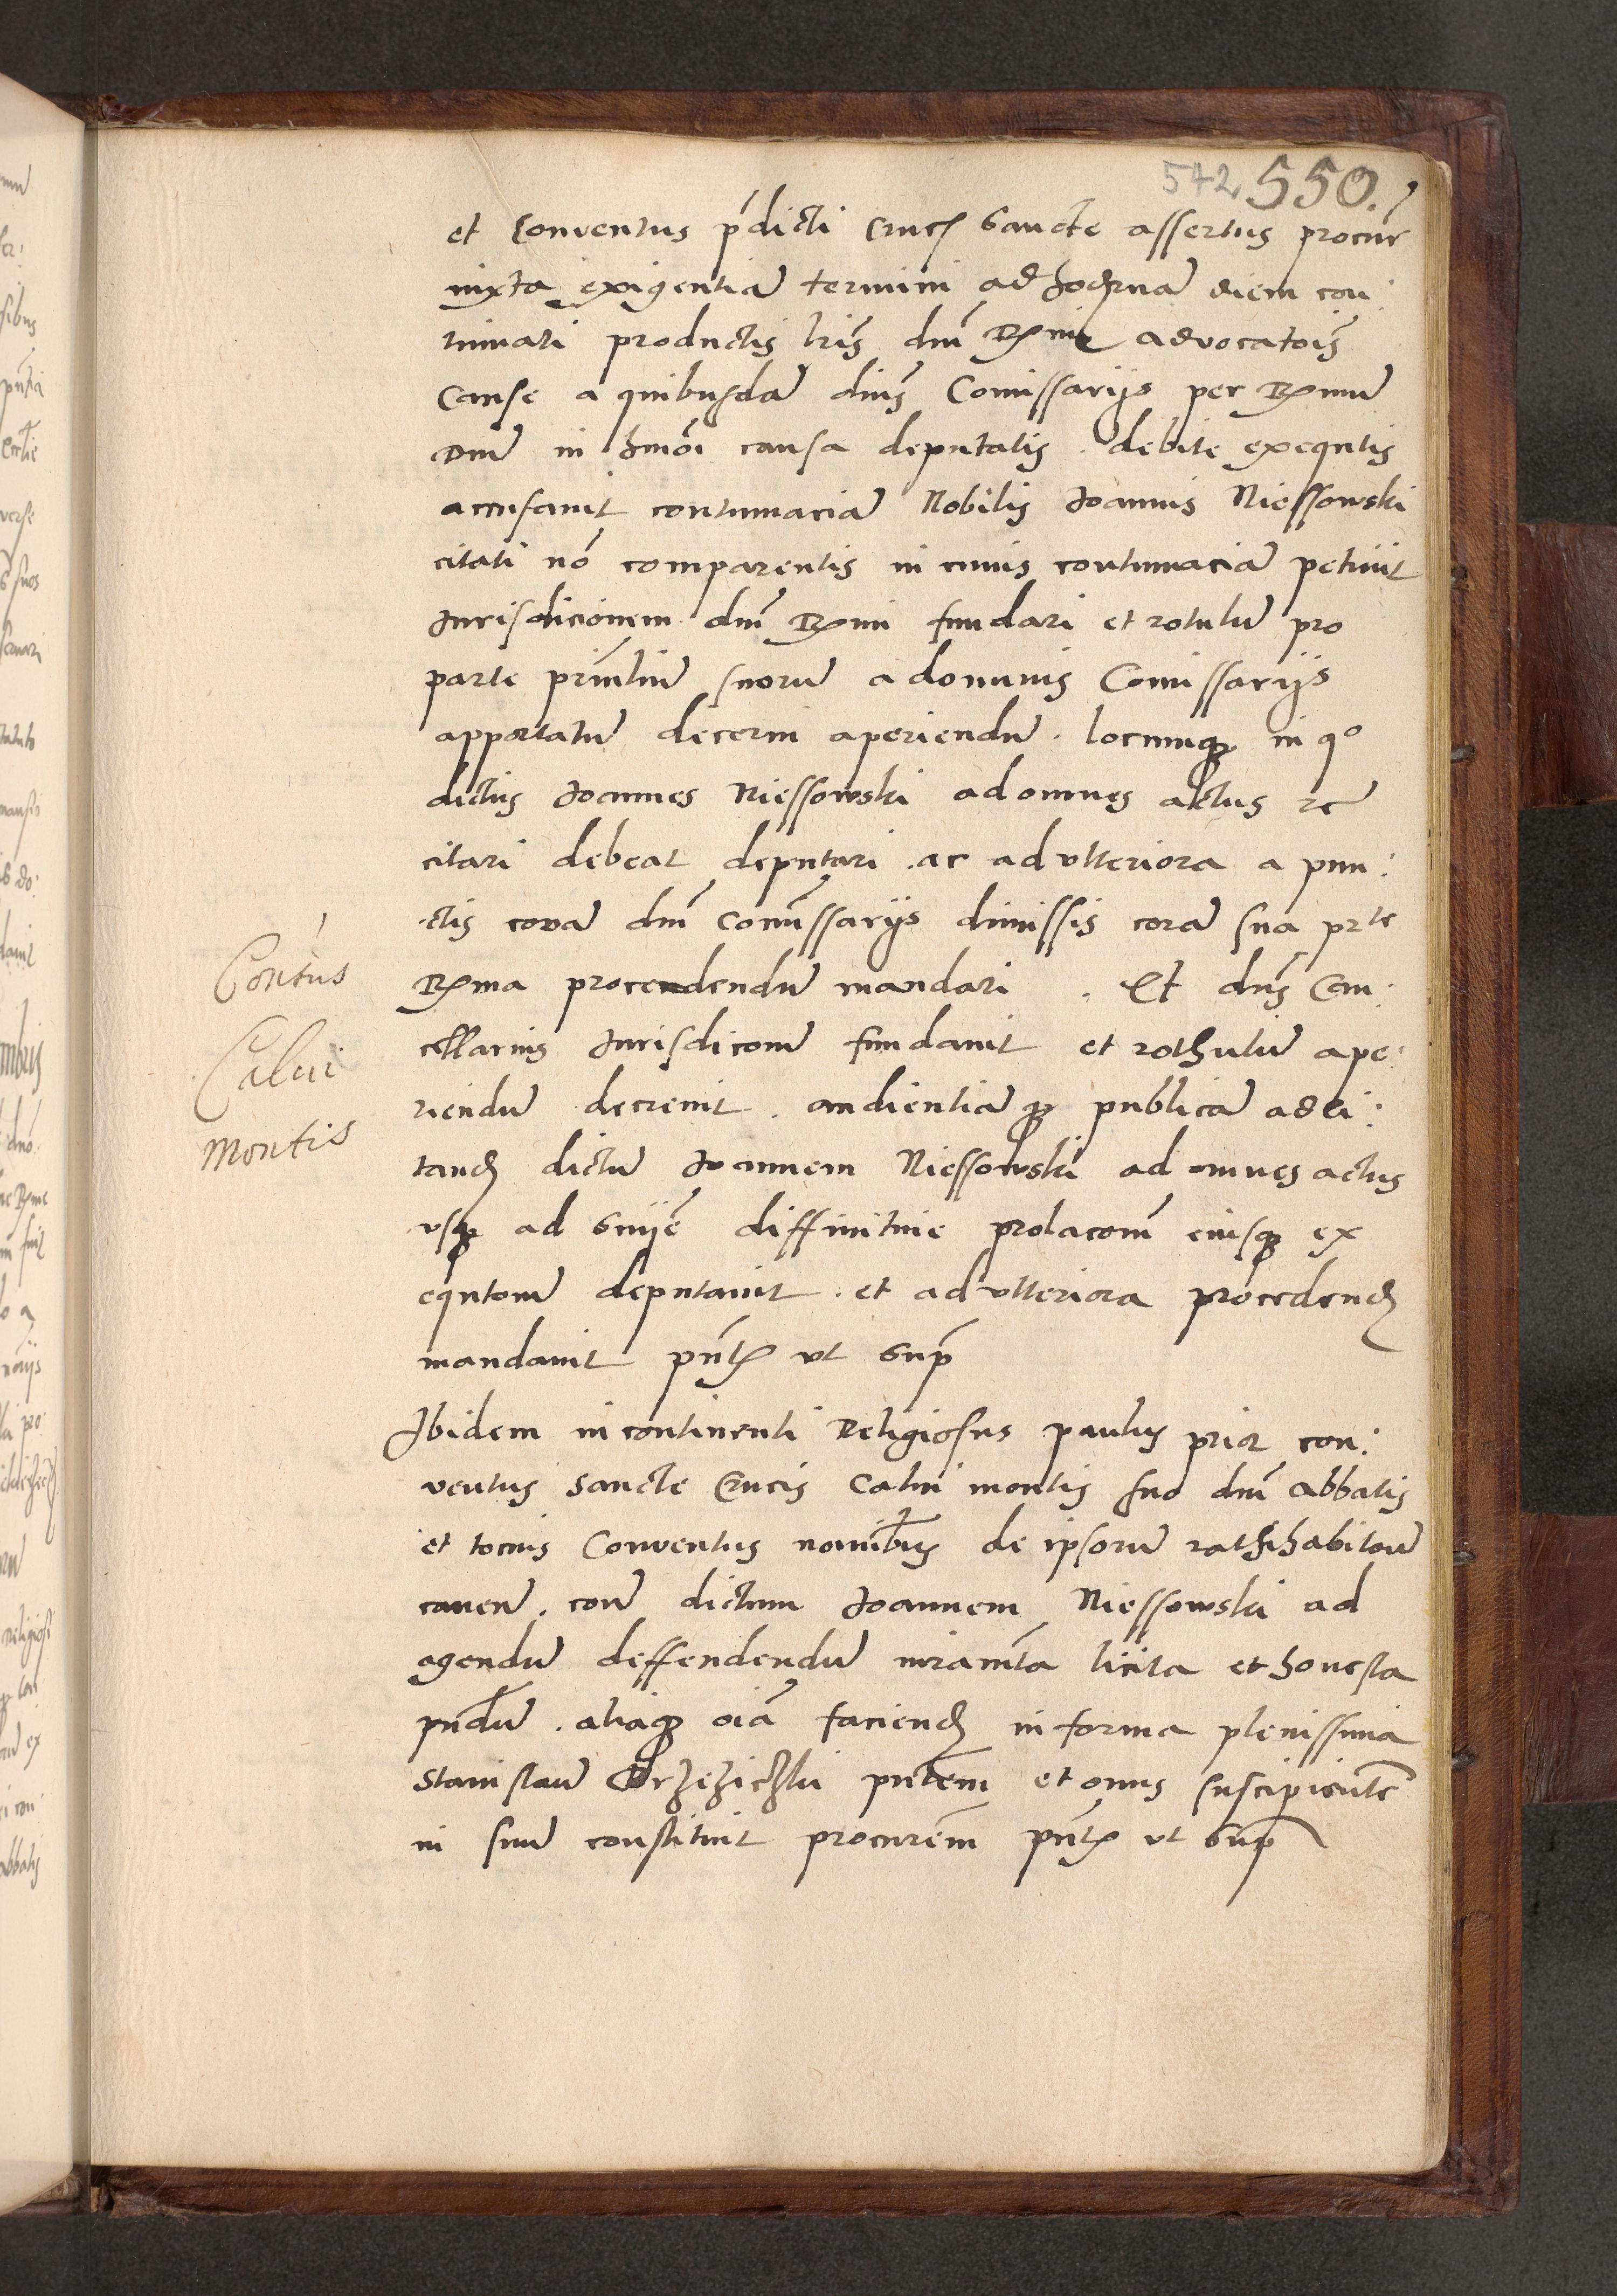 542 550.
et Conventus pdicti Crucis Sancte assertus procur
iuxta exigentia termini ad hodierna diem con:
tinuati productis lris dni Rmi advocatois
Cause a quibusda dnis Comissarijs per Rmum
Dnu in hmoi causa deputatis . debite exequtis
accusavit contumacia Nobilis Joannis Niessowski
citati no comparentis in cuius contumacia petiuit
Jurisdicionem dni Rmi fundari et rotulu pro
parte prinliu suoru a dominis Comissarijs
apportatu decerni aperiendu . locumque in qo
dictus Joannes Niessowski ad omnes actus re
citari debeat deputari . ac ad ulteriora a pun:
ctis cora dnis Comissarijs dimissis cora sua prte
Rma procendendu mandari . Et dns Can:
cellarius Jurisdicone fundavit et rothulu ape:
riendu decrevit . audientiaque publica ad ci:
tand dictu Joannem Niessowski ad omnes actus
usque ad snije diffinitiue prolacom eiusque ex
equtione deputavit . et ad ulteriora procedend
mandavit pntibus ut supra
Contus
Calui
montis
Ibidem in continenti Religiosus paulus prior con:
ventus Sancte Crucis Calui montis suo dni Abbatis
et tocius Conventus nominibus de ipsoru rathihabitone
caven . cone dictum Joannem Niessowski ad
agendu deffendendu iuramta licita et honesta
pndu . aliaque oia faciend in forma plenissima
Stanislau Orzezichski pntem et onus suscipiente
in suu constituit procurem pntibus ut supra